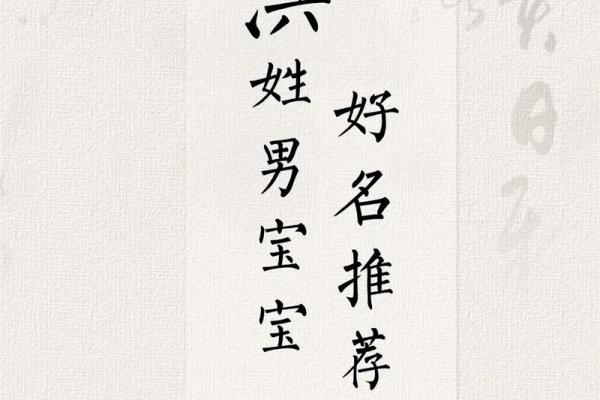 洪姓男宝宝
好名推荐